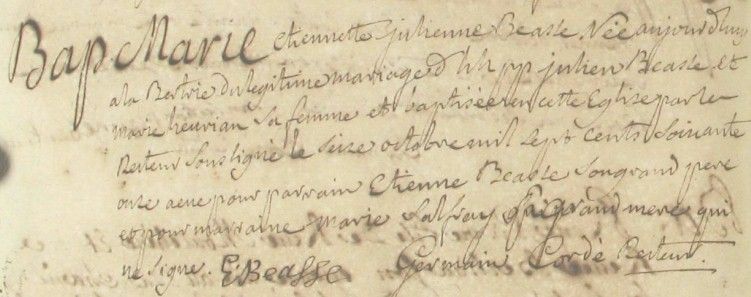 Bap Marie etiennette julienne Beasse Née aujourd'huy
a la Bertrie du legitime mariage d'hh pp julien Beasse et
marie heurian sa femme et baptisée en cette Eglise par le
Recteur soussigné le seize octobre mil sept cents soixante
onze a eue pour parrain Etienne Beasse son grand pere
et pour marraine marie Salfray grand mere qui
ne signe. E Beasse Germain Cordé Recteur.